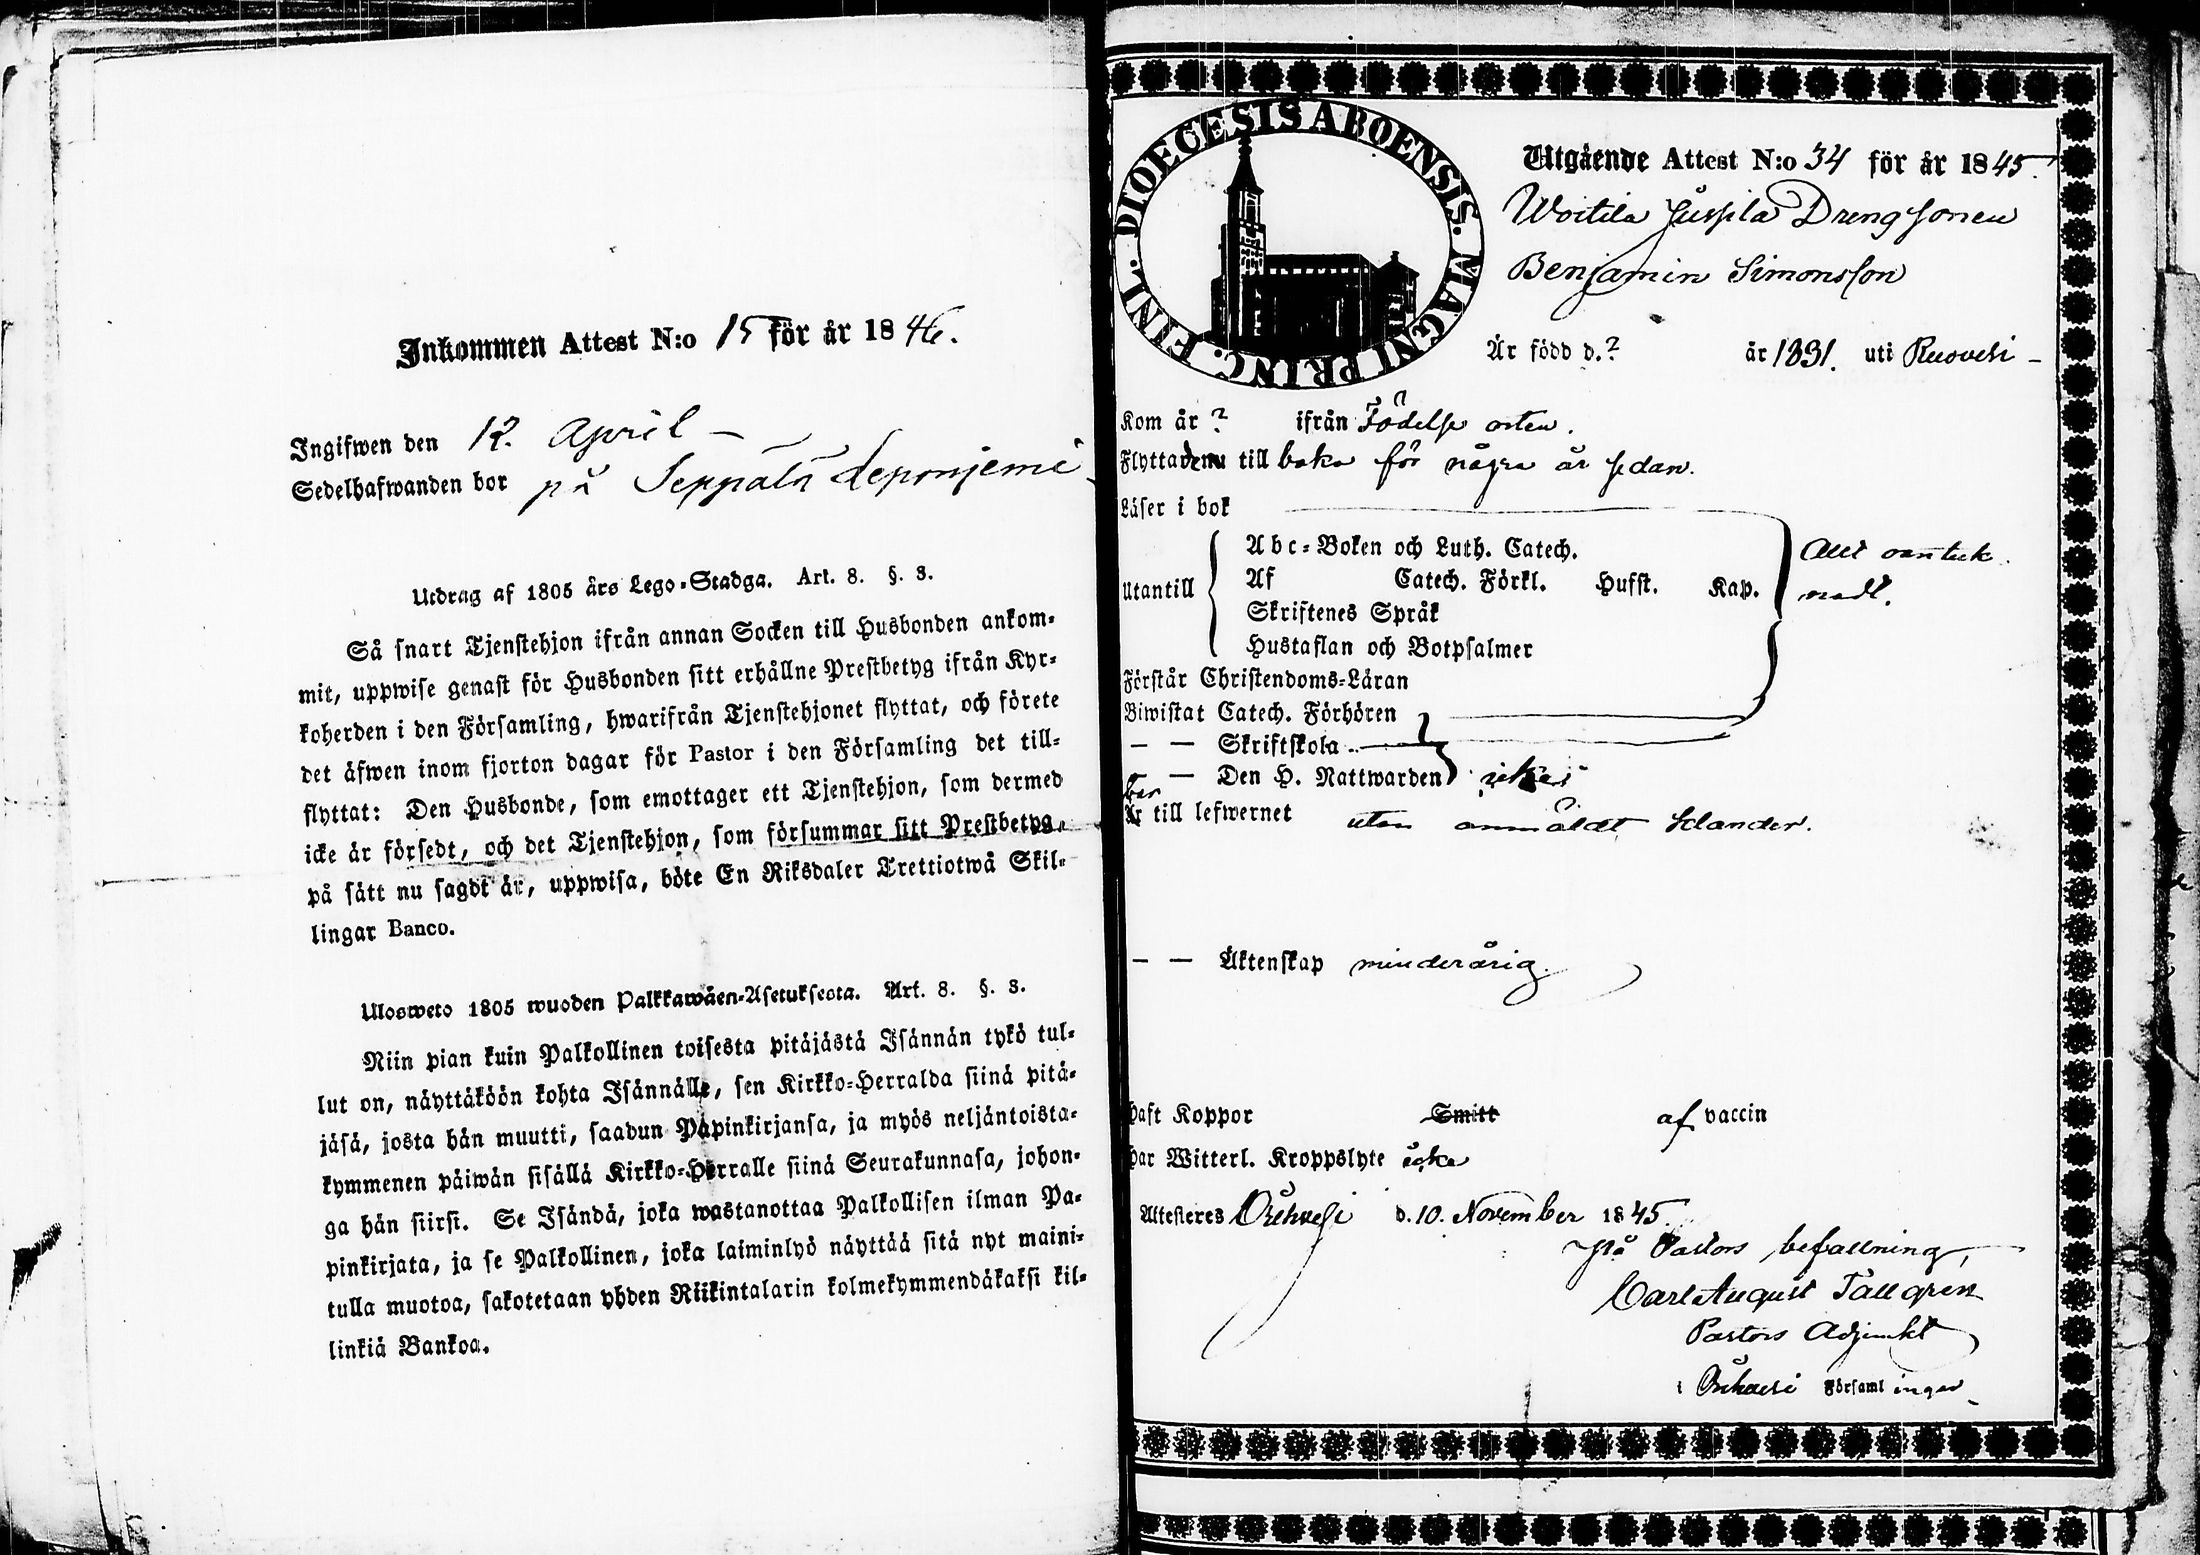 Inkommen Attest N:o 15 för år 1846.
Ingifwen den 12. April –
Sedelhafwanden bor på Seppälä
Utdrag af 1805 års Lego-Stadga. Art. 8. §. 3.
Så snart Tjenstehjon ifrån annan Socken till Husbonden ankom-
mit, uppwise genast för Husbonden sitt erhållne Prestbetyg ifrån Kyr-
koherden i den Församling, hwarifrån Tjenstehjonet flyttat, och förete
det äfwen inom fjorton dagar för Pastor i den Församling det till-
flyttat: Den Husbonde, som emottager ett Tjenstehjon, som dermed
icke är försedt, och det Tjenstehjon, som försummar sitt Prestbetyg,
på sätt nu sagdt är, uppwisa, böte En Riksdaler Trettiotwå Skil-
lingar Banco.
Ulosweto 1805 wuoden Palkkawäen-Asetuksesta. Art. 8. §. 3.
Niin pian kuin Palkollinen toisesta pitäjästä Isännän tykö tul-
lut on, näyttäköön kohta Isännälle, sen Kirkko-Herralda siinä pitä-
jäsä, josta hän muutti, saadun Papinkirjansa, ja myös neljäntoista-
kymmenen päiwän sisällä Kirkko-Herralle siinä Seurakunnasa, johon-
ga hän siirsi. Se Isändä, joka wastanottaa Palkollisen ilman Pa-
pinkirjata, ja se Palkollinen, joka laiminlyö näyttää sitä nyt maini-
tulla muotoa, sakotetaan yhden Riikintalarin kolmekymmendäkaksi kil-
linkiä Bankoa.
DIOECESIS ABOENSIS. MAGNI PRINC. FINL.
Utgående Attest N:o 34 för år 1845.
Woitila Jussila Drengsonen
Benjamin Simonsson
Är född d. ? år 1831. uti Ruovesi –
Kom år ? ifrån Födelse orten.
Flyttade till baka för några år sedan.
Läser i bok
Utantill
Abc-Boken och Luth. Catech.
Af Catech. Förkl. Hufst. Kap.
Skriftenes Språk
Hustaflan och Botpsalmer
Allt
Förstår Christendoms-Läran
Biwistat Catech. Förhören
— — Skriftskola
— Den H. Nattwarden icke
Är till lefwernet utan anmäldt klander.
— — Äktenskap minderårig.
Haft Koppor Smitt af vaccin
Har Witterl. Kroppslyte icke
Attesteres Orihvesi d. 10. November 1845.
På Pastors befallning,
Carl August Tallgren
Pastors Adjunkt
i Orihvesi Församlingar